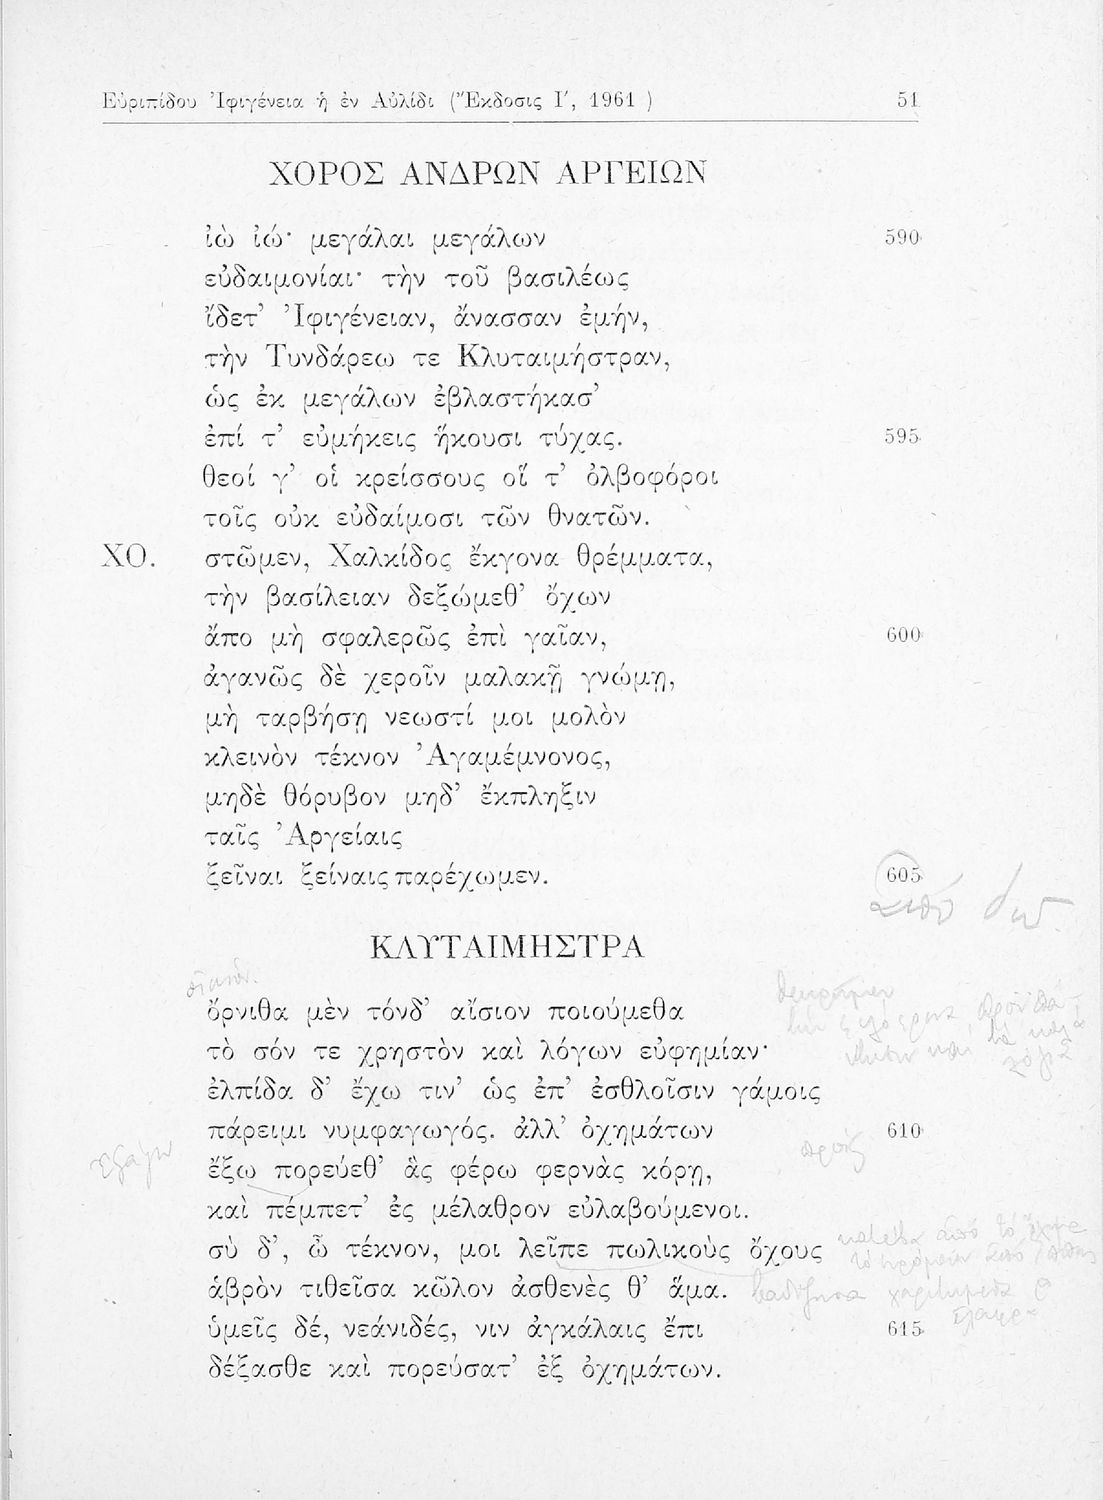 Εὐριπίδου Ἰφιγένεια ἡ ἐν Αὐλίδι (Ἔκδοσις Ι΄, 1961 ) 51
ΧΟΡΟΣ ΑΝΔΡΩΝ ΑΡΓΕΙΩΝ
ἰὼ ἰώ· μεγάλαι μεγάλων 590
εὐδαιμονίαι· τὴν τοῦ βασιλέως
ἴδετ’ Ἰφιγένειαν, ἄνασσαν ἐμήν,
τὴν Τυνδάρεω τε Κλυταιμήστραν,
ὡς ἐκ μεγάλων ἐβλαστήκασ’
ἐπί τ’ εὐμήκεις ἥκουσι τύχας. 595
θεοί γ’ οἱ κρείσσους οἵ τ’ ὀλβοφόροι
τοῖς οὐκ εὐδαίμοσι τῶν θνατῶν.
ΧΟ. στῶμεν, Χαλκίδος ἔκγονα θρέμματα,
τὴν βασίλειαν δεξώμεθ’ ὄχων
ἄπο μὴ σφαλερῶς ἐπὶ γαῖαν, 600
ἀγανῶς δὲ χεροῖν μαλακῇ γνώμῃ,
μὴ ταρβήσῃ νεωστί μοι μολὸν
κλεινὸν τέκνον Ἀγαμέμνονος,
μηδὲ θόρυβον μηδ’ ἔκπληξιν
ταῖς Ἀργείαις
ξεῖναι ξείναις παρέχωμεν. 605
ἀπὸ
ΚΛΥΤΑΙΜΗΣΤΡΑ
ὄρνιθα μὲν τόνδ’ αἴσιον ποιούμεθα
τὸ σόν τε χρηστὸν καὶ λόγων εὐφημίαν·
ἐλπίδα δ’ ἔχω τιν’ ὡς ἐπ’ ἐσθλοῖσιν γάμοις
πάρειμι νυμφαγωγός. ἀλλ’ ὀχημάτων 610
ἔξω πορεύεθ’ ἃς φέρω φερνὰς κόρῃ,
καὶ πέμπετ’ ἐς μέλαθρον εὐλαβούμενοι.
σὺ δ’, ὦ τέκνον, μοι λεῖπε πωλικοὺς ὄχους
ἁβρὸν τιθεῖσα κῶλον ἀσθενὲς θ’ ἅμα.
ὑμεῖς δέ, νεάνιδές, νιν ἀγκάλαις ἔπι 615
δέξασθε καὶ πορεύσατ’ ἐξ ὀχημάτων.